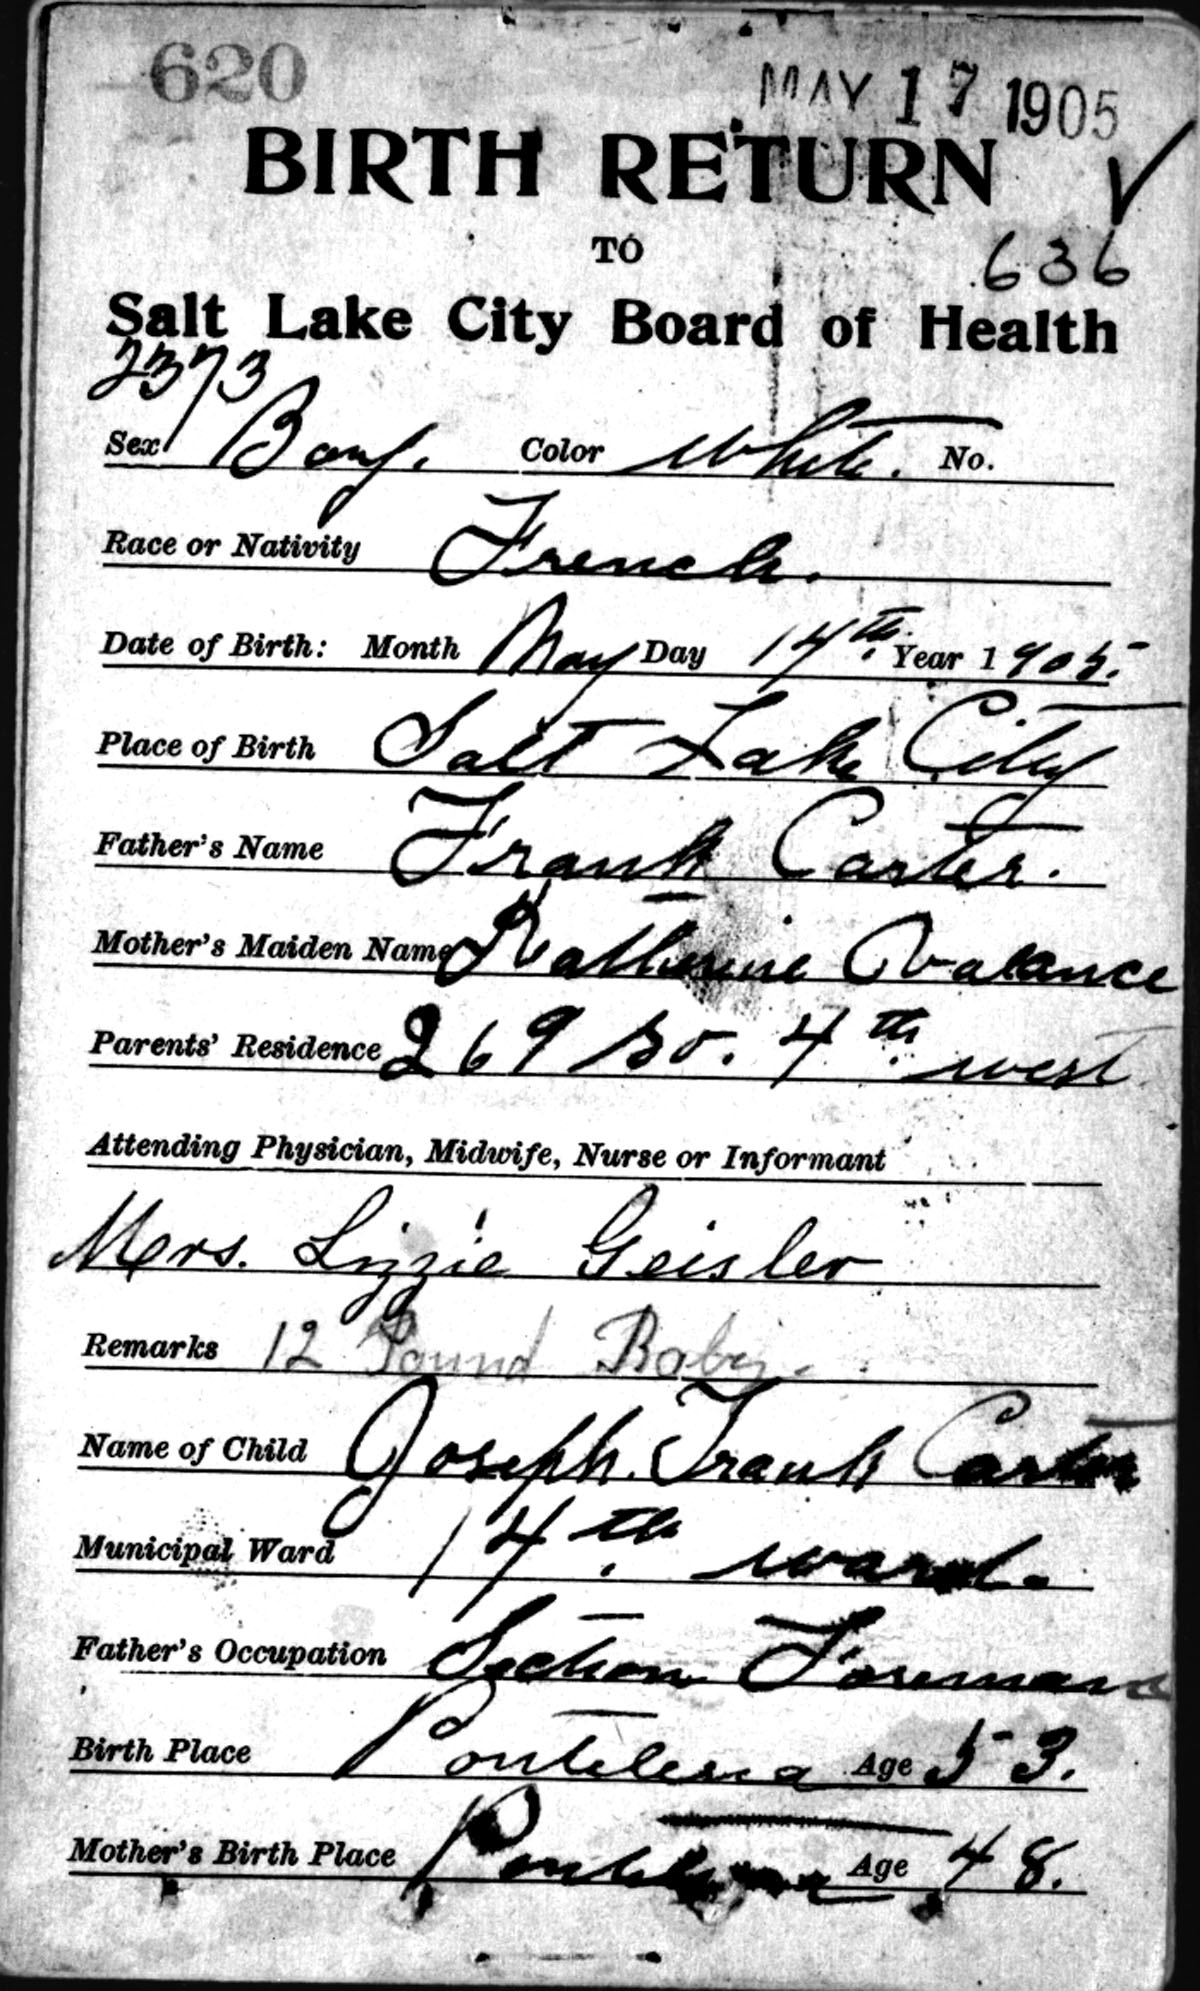 620
MAY 17 1905
BIRTH RETURN
TO
636
Salt Lake City Board of Health
2373
Sex Boy. Color White. No.
Race or Nativity French.
Date of Birth: Month May Day 14th. Year 1905.
Place of Birth Salt Lake City
Father's Name Frank Carter.
Mother's Maiden Name Katherine
Parents' Residence 269 So. 4th west
Attending Physician, Midwife, Nurse or Informant
Mrs. Lizzie Geisler
Remarks 12 Pound Baby.
Name of Child Joseph. Frank Carter
Municipal Ward 14th. ward.
Father's Occupation Section Foreman
Birth Place Age 53.
Mother's Birth Place Age 48.